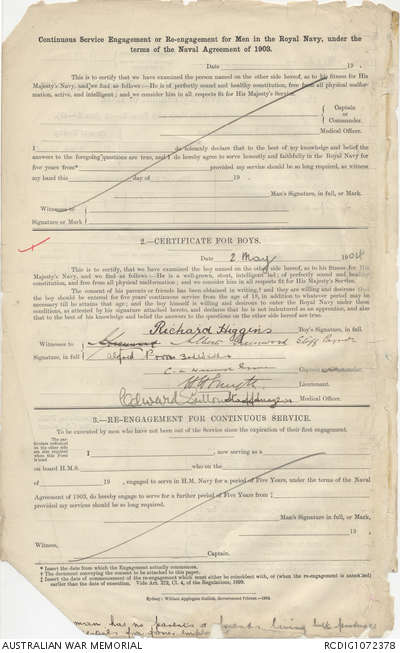 Continuous Service Engagement or Re-engagement for Men in the Royal Navy, under the
terms of the Naval Agreement of 1903.
Date 19 .
This is to certify that we have examined the person named on the other side hereof, as to his fitness for His
Majesty's Navy, and we find as follows:—He is of perfectly sound and healthy constitution, free from all physical malfor-
mation, active, and intelligent; and we consider him in all respects fit for His Majesty's Service.
Captain
or
Commander.
Medical Officer.
I do solemnly declare that to the best of my knowledge and belief the
answers to the foregoing questions are true, and I do hereby agree to serve honestly and faithfully in the Royal Navy for
five years from* provided my service should be so long required, as witness
my hand this day of 19 .
Man's Signature, in full, or Mark.
Witnesses to
Signature or Mark
2.—CERTIFICATE FOR BOYS.
Date 2 May 1904
This is to certify, that we have examined the boy named on the other side hereof, as to his fitness for His
Majesty's Navy, and we find as follows:—He is a well-grown, stout, intelligent lad; of perfectly sound and healthy
constitution, and free from all physical malformation; and we consider him in all respects fit for His Majesty's Service.
The consent of his parents or friends has been obtained to his being entered in writing; and they are willing and desirous that
the boy should be entered for five years continuous service from the age of 18, in addition to whatever period may be
necessary till he attain that age; and the boy himself is willing and desirous to enter the Navy under these
conditions, as attested by his signature attached hereto, and declares that he is not indentured as an apprentice, and also
that to the best of his knowledge and belief the answers to the questions on the other side hereof are true.
Richard Higgins Boy's Signature, in full.
Witnesses to
Signature, in full Alfred
Lieutenant.
Edward Medical Officer.
3.—RE-ENGAGEMENT FOR CONTINUOUS SERVICE.
To be executed by men who have not been out of the Service since the expiration of their first engagement.
The particulars indicated on the other side are also required when this Form is used
I , now serving as a
on board H.M.S. who on the
of 19 , engaged to serve in H.M. Navy for a period of Five Years, under the terms of the Naval
Agreement of 1903, do hereby engage to serve for a further period of Five Years from ‡
provided my services should be so long required.
Man's Signature, in full, or Mark.
19 .
Witness,
Captain.
* Insert the date from which the Engagement actually commences.
† The document conveying the consent to be attached to this paper.
‡ Insert date of commencement of the re-engagement which must either be coincident with, or (when the re-engagement is antedated)
earlier than the date of execution. Vide Art. 372, Cl. 4, of the Regulations, 1899.
Sydney: William Applegate Gullick, Government Printer.—1903.
man has no parents or friends living
AUSTRALIAN WAR MEMORIAL
RCDIG1072378